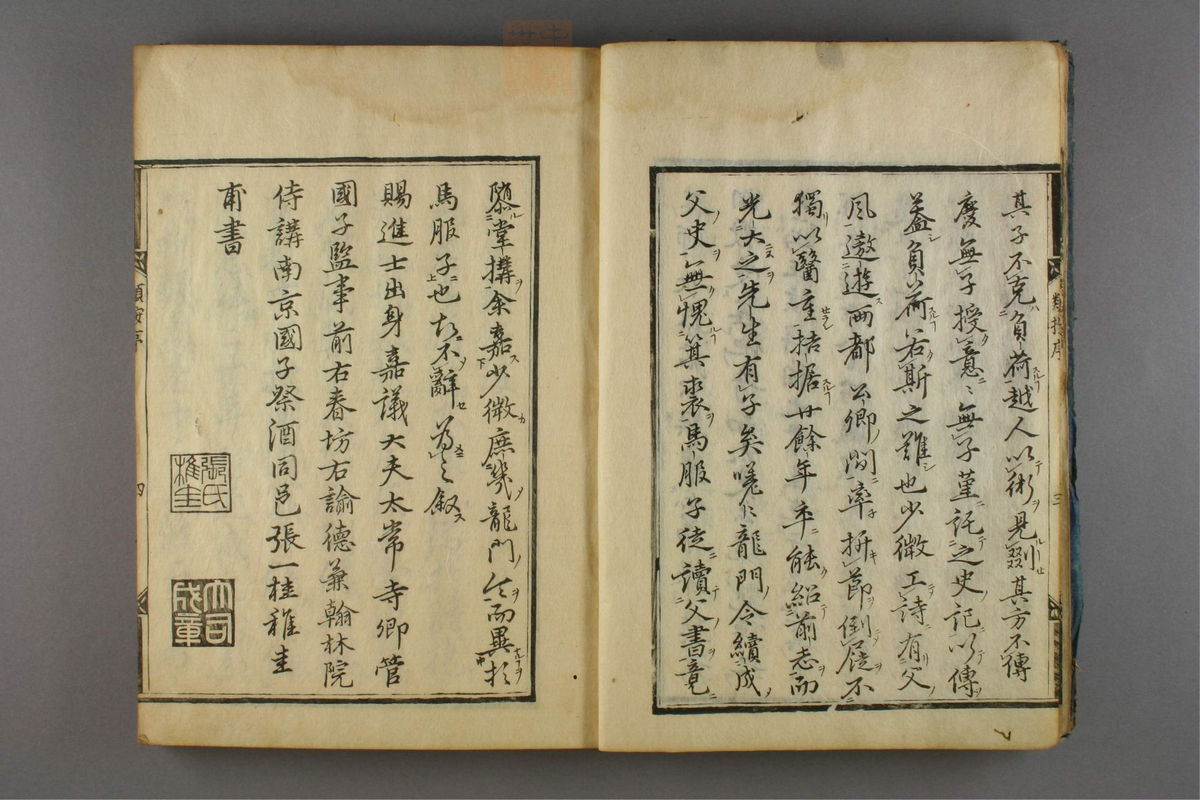 類按序
三
其子不克負荷越人以術見剟其方不傳
慶無子授意〻無子堇託之史記以傳
蓋負荷若斯之難也少微工詩有父
風遨遊兩都公卿間率折節倒屣不
獨以醫重拮据廿餘年卒能紹前志而
光大之先生有子矣嗟〻龍門令續成
父史無愧箕裘馬服子徒讀父書竟
隳堂搆余嘉少微庶幾龍門令而異於
馬服子也故不辭為之叙
賜進士出身嘉議大夫太常寺卿管
國子監事前右春坊右諭德兼翰林院
侍講南京國子祭酒同邑張一桂稚圭
甫書
張氏稚圭
大司成章
類按序
四